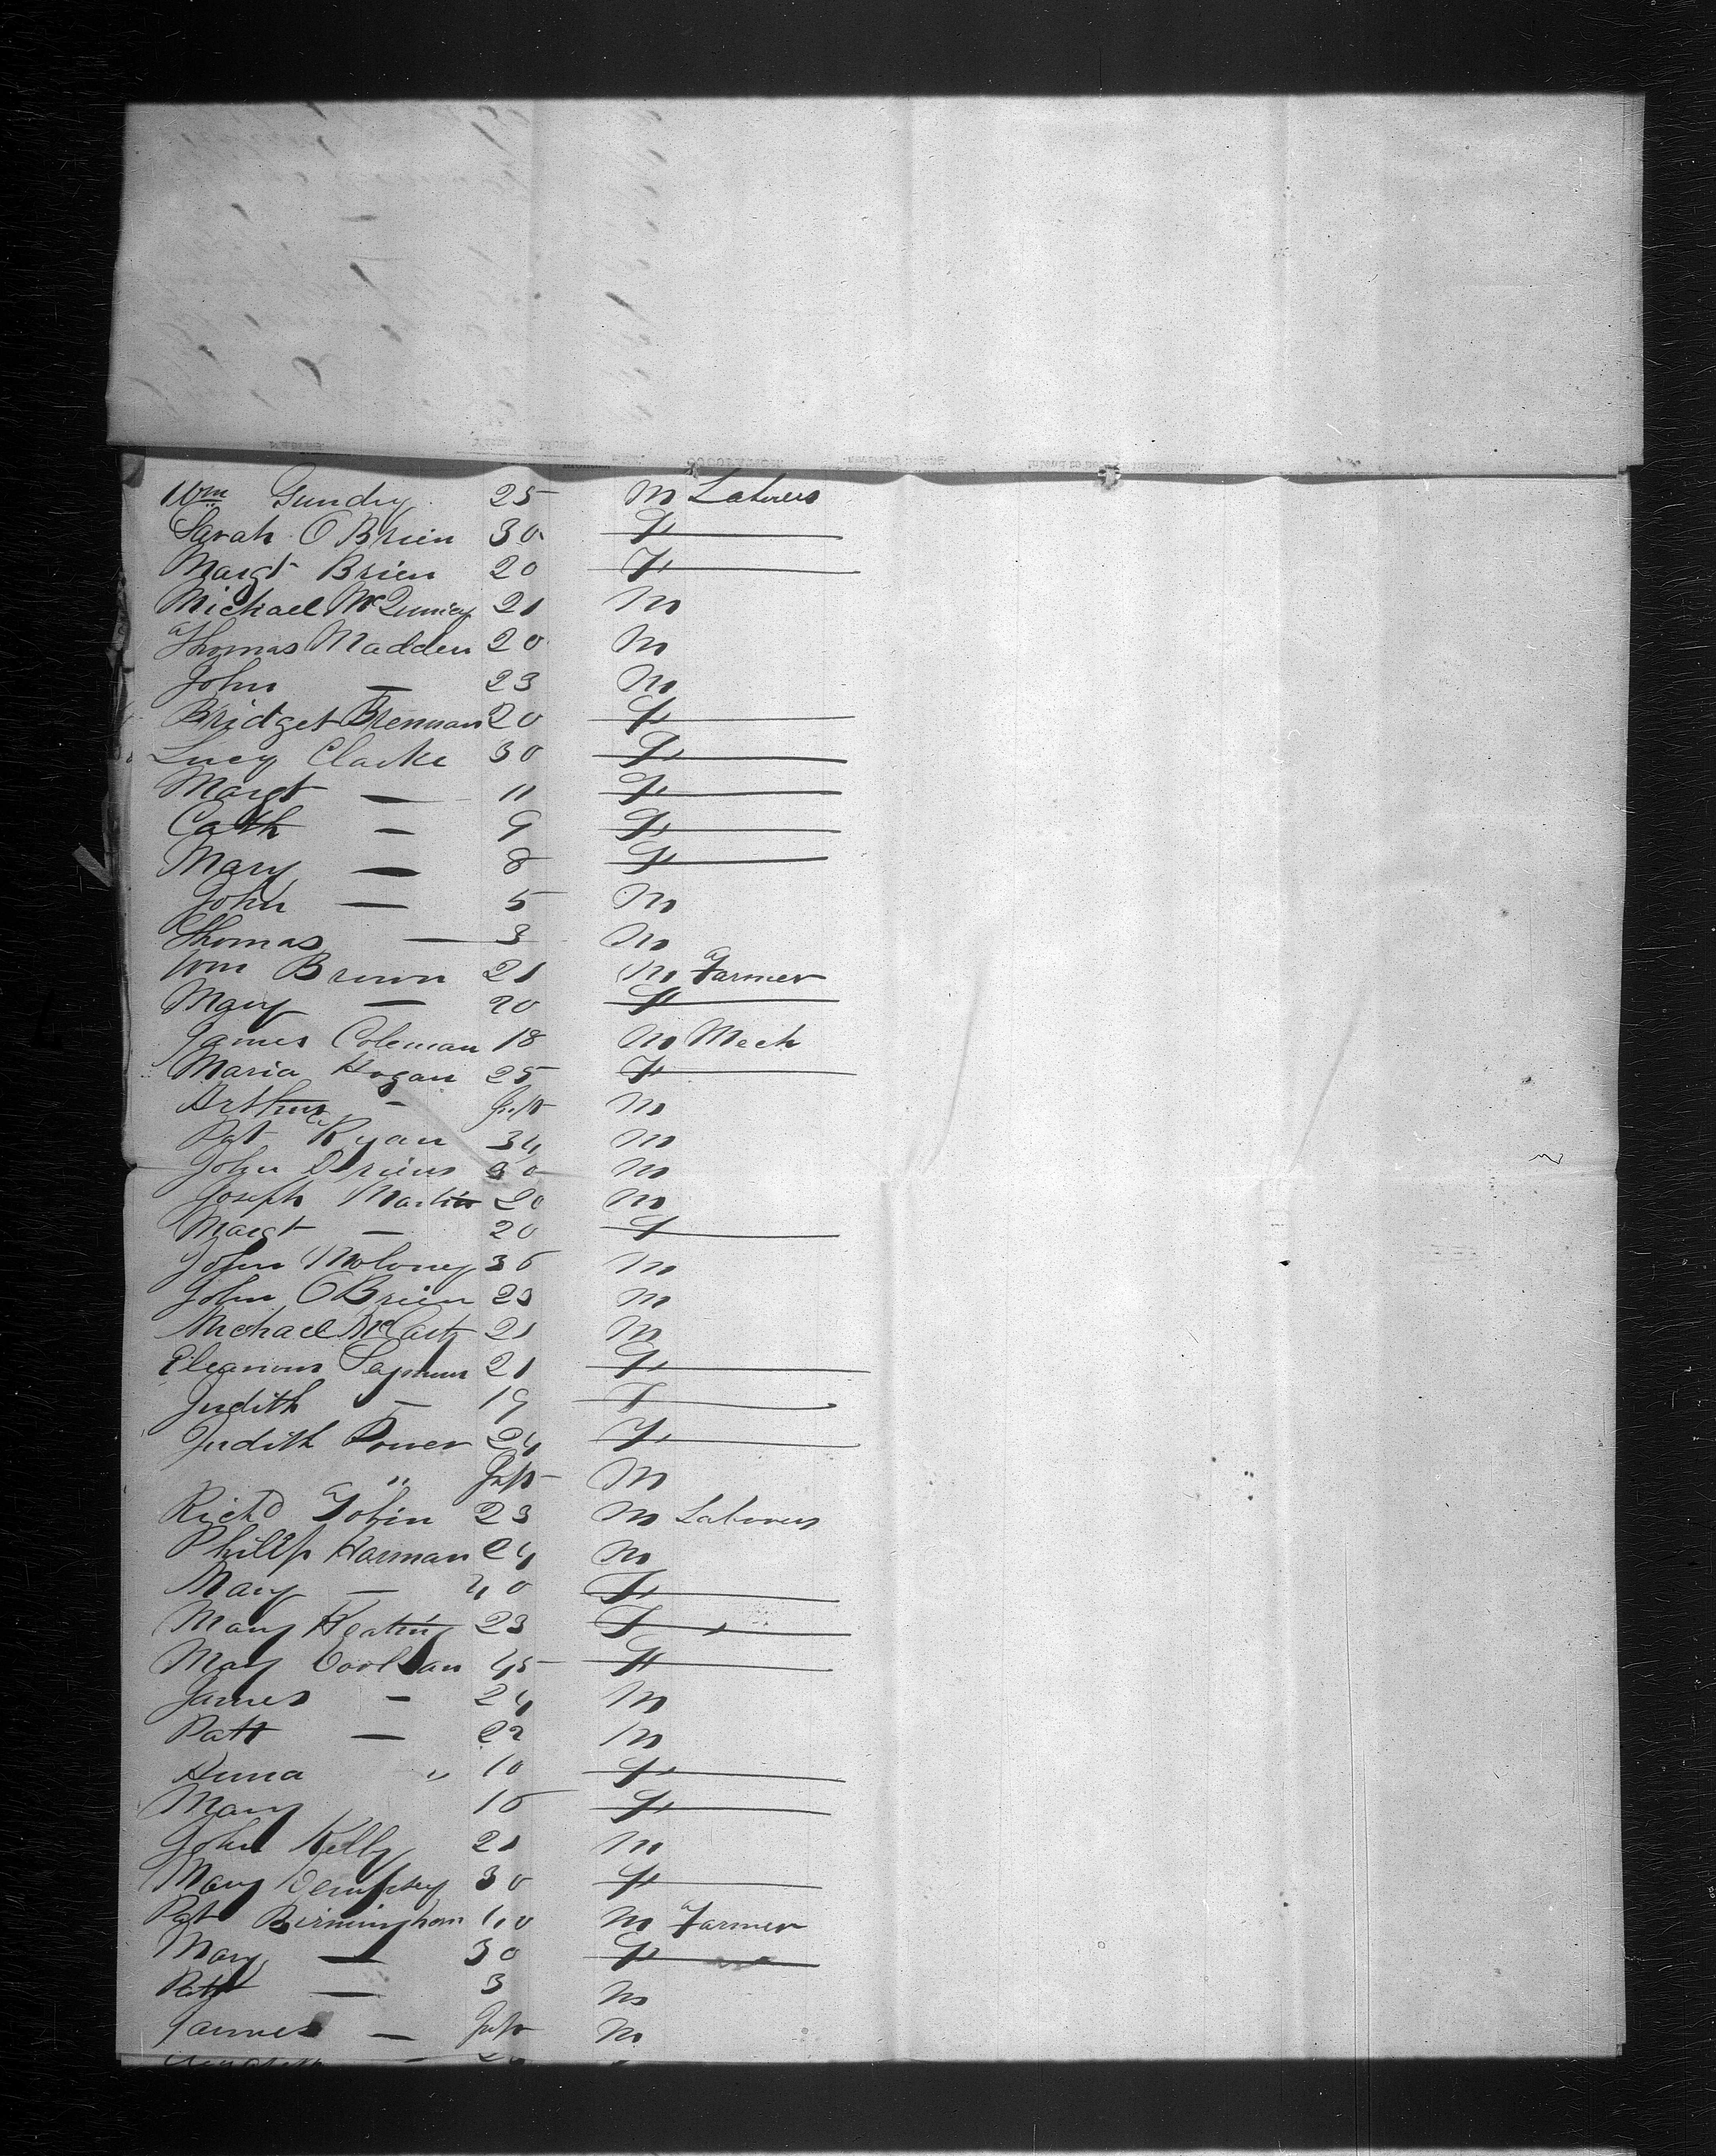 Wm Gundry 25 M Laborer
Sarah OBrien 30 F
Margt Brien 20 F
Michael 21 M
Thomas Madden 20 M
John — 23 M
Bridget Brennan 20 F
Lucy Clarke 30 F
Margt — 11 F
Cath — 9 F
Mary — 8 F
John — 5 M
Thomas — 3 M
Wm Brown 21 M Farmer
Mary — 20 F
James Coleman 18 M Mech
Maria Hogan 25 F
Arthur - Inft M
Pat Ryan 34 M
John 30 M
Joseph Martin 20 M
Margt — 20 F
John Moloney 36 M
John OBrien 23 M
Michael McCarty 21 M
21 F
Judith — 19 F
Judith Power 24 F
" Inft M
Richd Tobin 23 M Laborer
Philip Harman 24 M
Mary — 40 F
Mary Keating 23 F
Mary 45 F
James - 24 M
Patt — 22 M
Anna " 10 F
Mary 16 F
John Kelly 21 M
Mary Dempsey 30 F
Pat Birmingham 40 M Farmer
Mary — 30 F
Patt — 3 M
James — Inft M